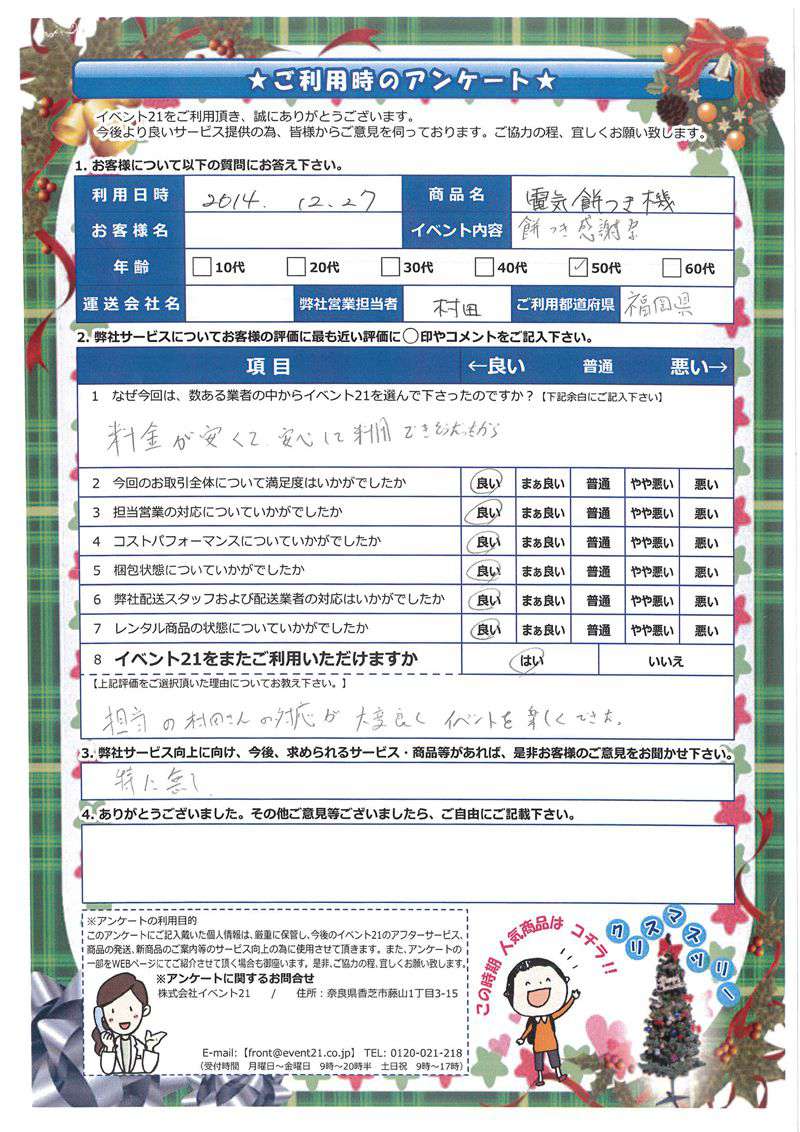 ★ご利用時のアンケート★
イベント21をご利用頂き、誠にありがとうございます。
今後より良いサービス提供の為、皆様からご意見を伺っております。ご協力の程、宜しくお願い致します。
1. お客様について以下の質問にお答え下さい。
利用日時 2014. 12.27 商品名 電気餅つき機
お客様名 イベント内容 餅つき感謝祭
年齢 10代 20代 30代 40代 ✓50代 60代
運送会社名 弊社営業担当者 村田 ご利用都道府県 福岡県
2. 弊社サービスについてお客様の評価に最も近い評価に○印やコメントをご記入下さい。
項目 ←良い 普通 悪い→
1 なぜ今回は、数ある業者の中からイベント21を選んで下さったのですか？【下記余白にご記入下さい】
料金が安くて、安心して利用できそうだったから
2 今回のお取引全体について満足度はいかがでしたか 良い まぁ良い 普通 やや悪い 悪い
3 担当営業の対応についていかがでしたか 良い まぁ良い 普通 やや悪い 悪い
4 コストパフォーマンスについていかがでしたか 良い まぁ良い 普通 やや悪い 悪い
5 梱包状態についていかがでしたか 良い まぁ良い 普通 やや悪い 悪い
6 弊社配送スタッフおよび配送業者の対応はいかがでしたか 良い まぁ良い 普通 やや悪い 悪い
7 レンタル商品の状態についていかがでしたか 良い まぁ良い 普通 やや悪い 悪い
8 イベント21をまたご利用いただけますか はい いいえ
【上記評価をご選択頂いた理由についてお教え下さい。】
担当の村田さんの対応が大変良くイベントを楽しくできた。
3. 弊社サービス向上に向け、今後、求められるサービス・商品等があれば、是非お客様のご意見をお聞かせ下さい。
特に無し
4. ありがとうございました。その他ご意見等ございましたら、ご自由にご記載下さい。
※アンケートの利用目的
このアンケートにご記入戴いた個人情報は、厳重に保管し、今後のイベント21のアフターサービス、
商品の発送、新商品のご案内等のサービス向上の為に使用させて頂きます。また、アンケートの
一部をWEBページにてご紹介させて頂く場合も御座います。是非、ご協力の程、宜しくお願い致します。
※アンケートに関するお問合せ
株式会社イベント21 / 住所：奈良県香芝市藤山1丁目3-15
E-mail:【front@event21.co.jp】 TEL: 0120-021-218
（受付時間 月曜日～金曜日 9時～20時半 土日祝 9時～17時）
この時期 人気商品は コチラ!!
クリスマスツリー